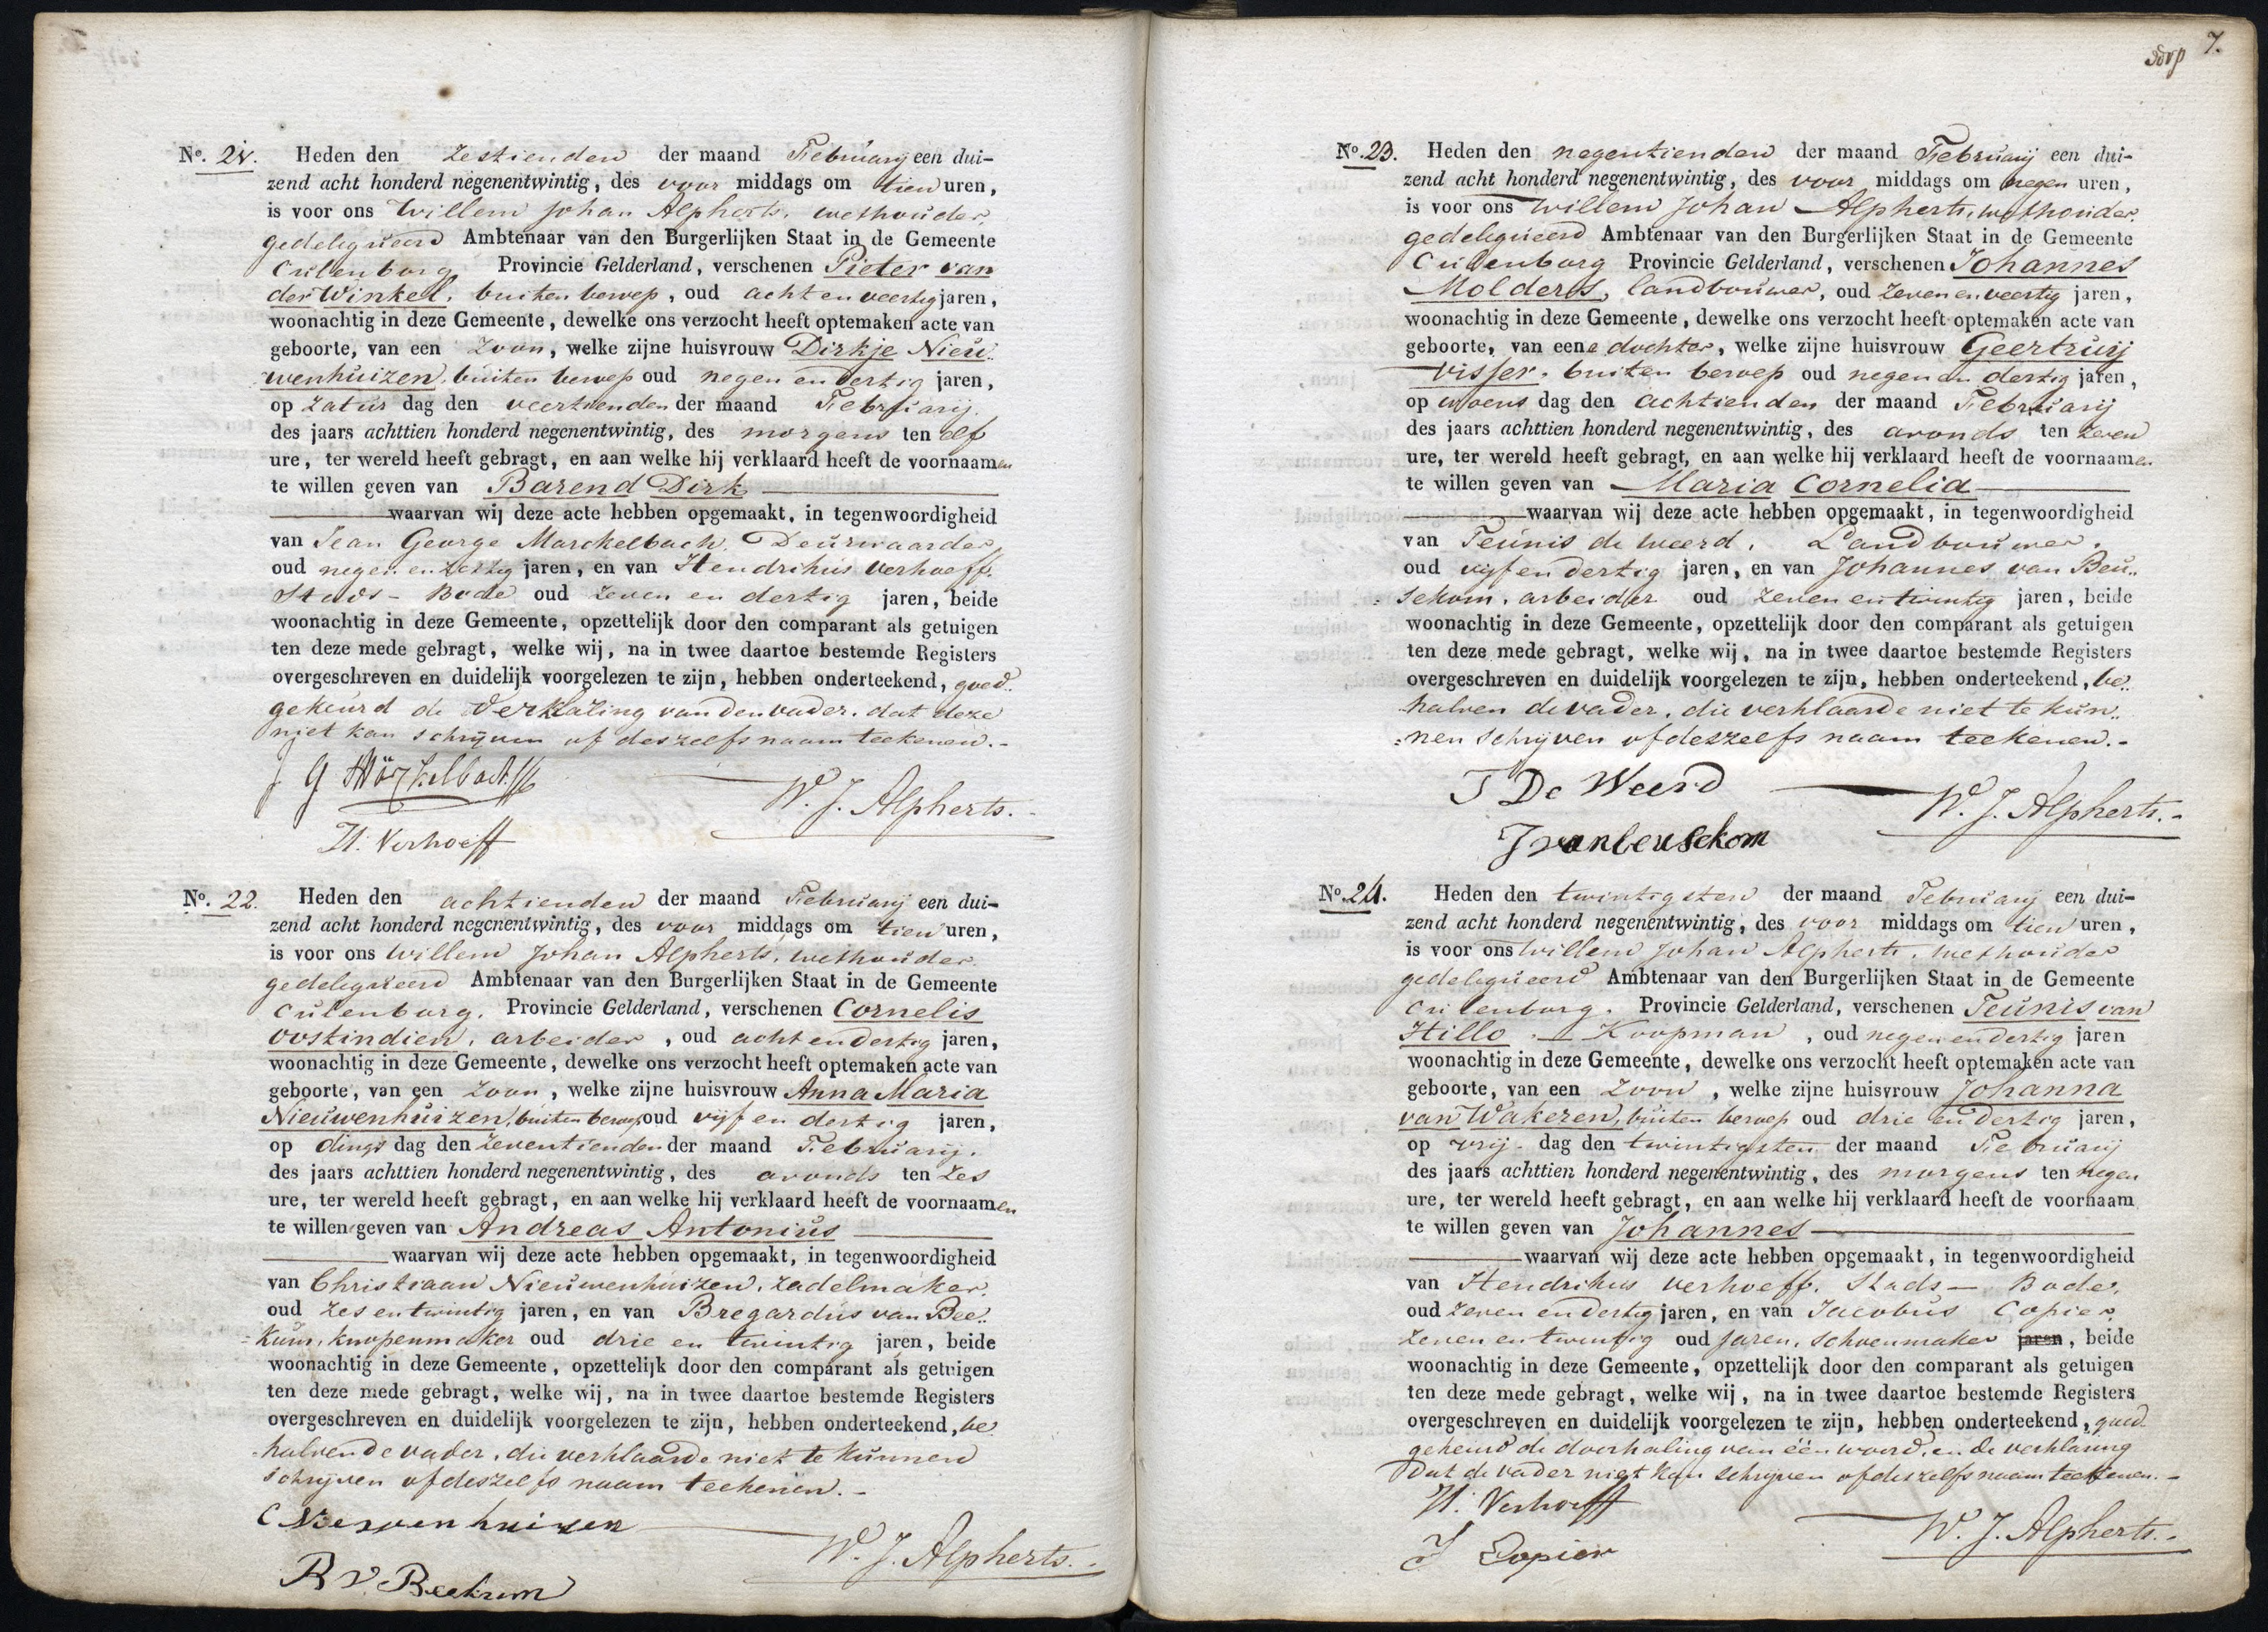 No. 21. Heden den zestienden der maand Februarij een dui-
zend acht honderd negenentwintig, des voor middags om tien uren,
is voor ons Willem Johan Alpherts, wethouder
gedelegueerd Ambtenaar van den Burgerlijken Staat in de Gemeente
Culenborg Provincie Gelderland, verschenen Pieter van
der Winkel, buiten beroep, oud acht en veertig jaren,
woonachtig in deze Gemeente, dewelke ons verzocht heeft optemaken acte van
geboorte, van een Zoon, welke zijne huisvrouw Dirkje Nieu..
wenhuizen, buiten beroep oud negen en dertig jaren,
op zatur dag den veertienden der maand Februarij.
des jaars achttien honderd negenentwintig, des morgens ten elf
ure, ter wereld heeft gebragt, en aan welke hij verklaard heeft de voornaamen
te willen geven van Barend Dirk
waarvan wij deze acte hebben opgemaakt, in tegenwoordigheid
van Jean George Marckelbach, Deurwaarder
oud negen en zestig jaren, en van Hendrikus Verhoeff,
Stads-Bode oud zeven en dertig jaren, beide
woonachtig in deze Gemeente, opzettelijk door den comparant als getuigen
ten deze mede gebragt, welke wij, na in twee daartoe bestemde Registers
overgeschreven en duidelijk voorgelezen te zijn, hebben onderteekend, goed..
gekeurd de verklaring van den vader, dat deze
niet kan schrijven of deszelfs naam teekenen.-
J G Märkelbach
W. J. Alpherts.
H. Verhoeff
No. 22. Heden den achtienden der maand Februarij een dui-
zend acht honderd negenentwintig, des voor middags om tien uren,
is voor ons Willem Johan Alpherts, wethouder
gedelegueerd Ambtenaar van den Burgerlijken Staat in de Gemeente
Culenborg. Provincie Gelderland, verschenen Cornelis
Oostindien, arbeider, oud acht en dertig jaren,
woonachtig in deze Gemeente, dewelke ons verzocht heeft optemaken acte van
geboorte, van een Zoon, welke zijne huisvrouw Anna Maria
Nieuwenhuizen, buiten beroep oud vijf en dertig jaren,
op dings dag den zeventienden der maand Februarij.
des jaars achttien honderd negenentwintig, des avonds ten zes
ure, ter wereld heeft gebragt, en aan welke hij verklaard heeft de voornaamen
te willen geven van Andreas Antonius
waarvan wij deze acte hebben opgemaakt, in tegenwoordigheid
van Christiaan Nieuwenhuizen, zadelmaker,
oud zes en twintig jaren, en van Bregardus van Bee..
kum, knopenmaker oud drie en twintig jaren, beide
woonachtig in deze Gemeente, opzettelijk door den comparant als getuigen
ten deze mede gebragt, welke wij, na in twee daartoe bestemde Registers
overgeschreven en duidelijk voorgelezen te zijn, hebben onderteekend, be
halven de vader, die verklaarde niet te kunnen
schrijven of deszelfs naam teekenen.-
C Niewenhuizen
W. J. Alpherts.
B V Beekum
7.
No. 23. Heden den negentienden der maand Februarij een dui-
zend acht honderd negenentwintig, des voor middags om negen uren,
is voor ons Willem Johan Alpherts, wethouder
gedelegueerd Ambtenaar van den Burgerlijken Staat in de Gemeente
Culenborg Provincie Gelderland, verschenen Johannes
Molders, landbouwer, oud zeven en veertig jaren,
woonachtig in deze Gemeente, dewelke ons verzocht heeft optemaken acte van
geboorte, van eene dochter, welke zijne huisvrouw Geertruij
Visser, buiten beroep oud negen en dertig jaren,
op woens dag den achtienden der maand Februarij
des jaars achttien honderd negenentwintig, des avonds ten zeven
ure, ter wereld heeft gebragt, en aan welke hij verklaard heeft de voornaamen
te willen geven van Maria Cornelia
waarvan wij deze acte hebben opgemaakt, in tegenwoordigheid
van Teunis de Weerd, Landbouwer,
oud vijf en dertig jaren, en van Johannes van Beu..
sekom, arbeider oud zeven en twintig jaren, beide
woonachtig in deze Gemeente, opzettelijk door den comparant als getuigen
ten deze mede gebragt, welke wij, na in twee daartoe bestemde Registers
overgeschreven en duidelijk voorgelezen te zijn, hebben onderteekend, be..
halven de vader, die verklaarde niet te kun..
nen schrijven of deszelfs naam teekenen.-
T De Weerd
W. J. Alpherts.-
J vanbeusekom
No. 24. Heden den twintigsten der maand Februarij een dui-
zend acht honderd negenentwintig, des voor middags om tien uren,
is voor ons Willem Johan Alpherts, wethouder
gedelegueerd Ambtenaar van den Burgerlijken Staat in de Gemeente
Culenborg. Provincie Gelderland, verschenen Teunis van
Hillo, Koopman, oud negen en dertig jaren
woonachtig in deze Gemeente, dewelke ons verzocht heeft optemaken acte van
geboorte, van een Zoon, welke zijne huisvrouw Johanna
van Wakeren, buiten beroep oud drie en dertig jaren,
op vrij- dag den twintigsten der maand Februarij
des jaars achttien honderd negenentwintig, des morgens ten negen
ure, ter wereld heeft gebragt, en aan welke hij verklaard heeft de voornaam
te willen geven van Johannes
waarvan wij deze acte hebben opgemaakt, in tegenwoordigheid
van Hendrikus Verhoeff, Stads-Bode,
oud zeven en dertig jaren, en van Jacobus Copier
zeven en twintig oud jaren, schoenmaker jaren, beide
woonachtig in deze Gemeente, opzettelijk door den comparant als getuigen
ten deze mede gebragt, welke wij, na in twee daartoe bestemde Registers
overgeschreven en duidelijk voorgelezen te zijn, hebben onderteekend, goed
gekeurd de doorhaling van één woord, en de verklaring
dat de vader niet kan schrijven of deszelfs naam teekenen.-
H. Verhoeff
W. J. Alpherts.-
J Copier